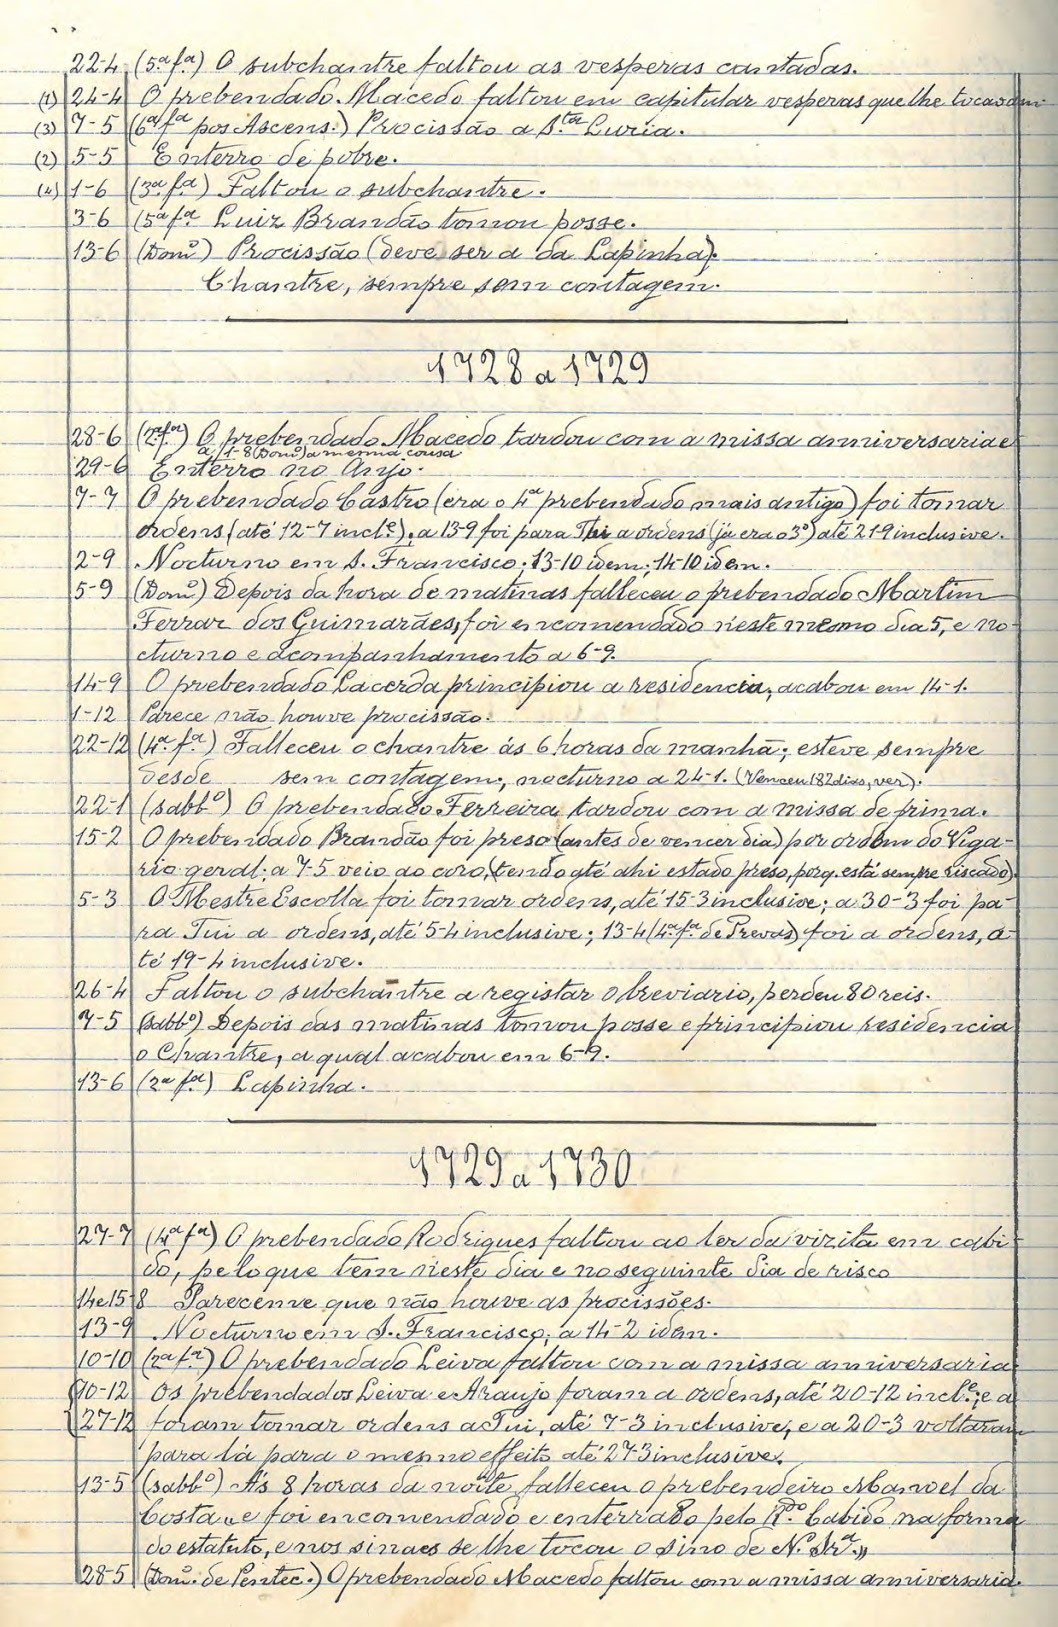 22-4 (5ª fª) O subchantre faltou as vesperas cantadas.
(1) 24-4 O prebendado Macedo faltou em capitular vesperas que lhe tocavam
(3) 7-5 (6ª fª pos Ascens.) Procissão a Sta Luzia.
(2) 5-5 Enterro de pobre.
(4) 1-6 (3ª fª) Faltou o subchantre.
3-6 (5ª fª Luiz Brandão tomou posse.
13-6 (Domº) Procissão (deve ser a da Lapinha).
Chantre, sempre sem contagem.
1728 a 1729
28-6 (2ª fª) O prebendado Macedo tardou com a missa anniversaria e
a 1-8 (Domº) a mesma cousa
29-6 Enterro no Anjo.
7-7 O prebendado Castro (era o 4º prebendado mais antigo) foi tomar
ordens (até 12-7 incl.e), a 13-9 foi para Tui a ordens (já era o 3º) até 21-9 inclusive.
2-9 Nocturno em S. Francisco; 13-10 idem; 14-10 idem.
5-9 (Domº) Depois da hora de matinas falleceu o prebendado Martim
Ferrar dos Guimarães, foi encomendado n'este mesmo dia 5, e no-
cturno e acompanhamento a 6-9.
14-9 O prebendado Lacerda principiou a residencia, acabou em 14-1.
1-12 Parece não houve procissão.
22-12 (4ª fª) Falleceu o chantre ás 6 horas da manhã; esteve sempre
desde sem contagem; nocturno a 24-1. (Venceu 182 dias, ver).
22-1 (sabbº) O prebendado Ferreira tardou com a missa de prima.
15-2 O prebendado Brandão foi preso (antes de vencer dia) por ordem do Viga-
rio geral; a 7-5 veio ao coro, (tendo até ahi estado preso, porq. está sempre riscado).
5-3 O Mestre Escolla foi tomar ordens, até 15-3 inclusive; a 30-3 foi pa-
ra Tui a ordens, até 5-4 inclusive; 13-4 (4ª fª de Trevas) foi a ordens, a-
té 19-4 inclusive.
26-4 Faltou o subchantre a registar o breviario, perdeu 80 reis.
7-5 (sabbº) Depois das matinas tomou posse e principiou residencia
o Chantre, a qual acabou em 6-9.
13-6 (2ª fª) Lapinha.
1729 a 1730
27-7 (4ª fª) O prebendado Rodrigues faltou ao ler da vizita em cabi-
do, pelo que tem n'este dia e no seguinte dia de risco
14 e 15-8 Pareceme que não houve as procissões.
13-9 Nocturno em S. Francisco; a 14-2 idem.
10-10 (2ª fª) O prebendado Leiva faltou com a missa anniversaria
10-12 Os prebendados Leiva e Araujo foram a ordens, até 20-12 incl.e; e a
27-12 foram tomar ordens a Tui, até 7-3 inclusive, e a 20-3 voltaram
para lá para o mesmo effeito até 27-3 inclusive.
13-5 (sabbº) Ás 8 horas da noite falleceu o prebendeiro Manoel da
Costa "e foi encomendado e enterrado pelo R.do Cabido na forma
do estatuto, e nos sinaes se lhe tocou o sino de N. Srª."
28-5 (Domº. de Pentec.) O prebendado Macedo faltou com a missa anniversaria.